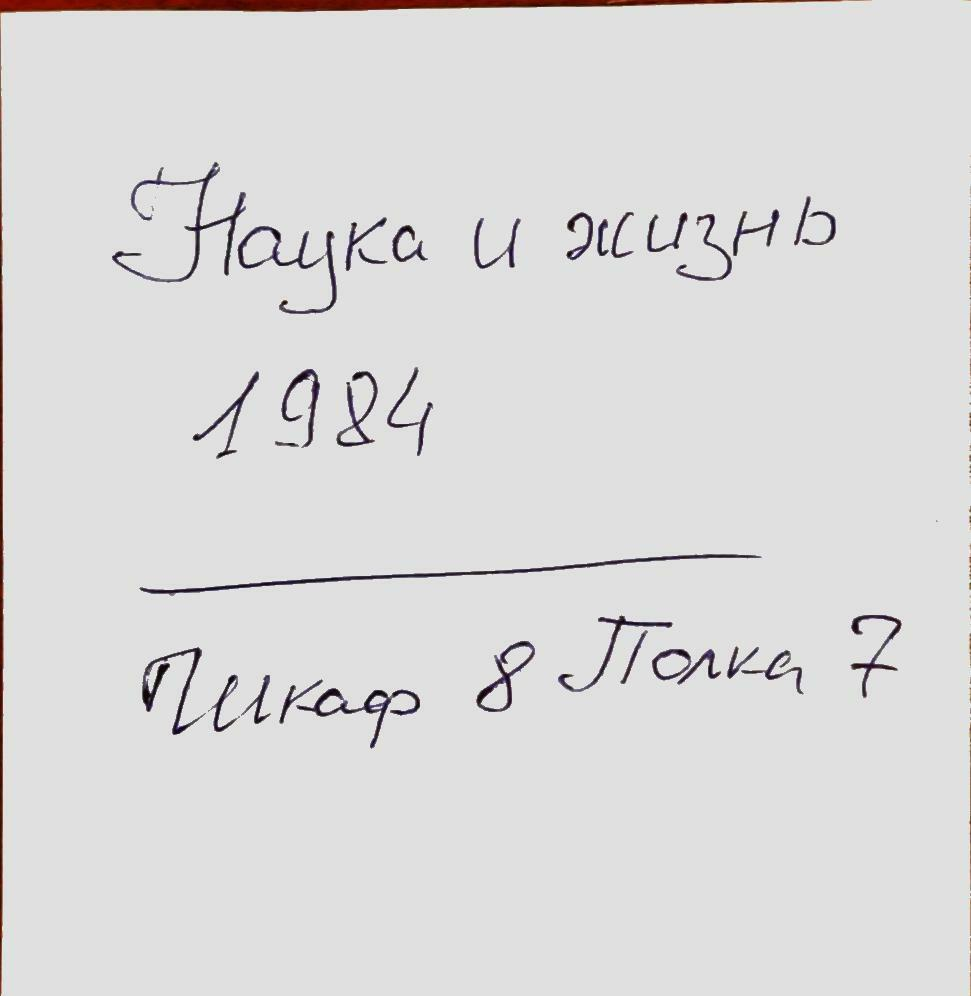 Наука и жизнь
1984
Шкаф 8 Полка 7